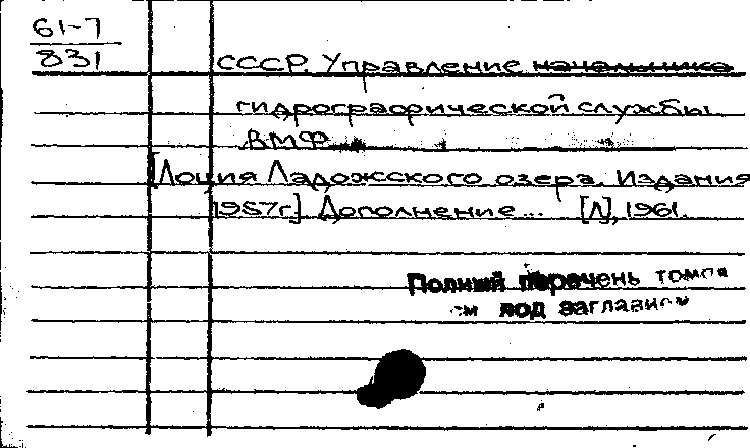 61-7
831
СССР. Управление начальника
гидрографической службы
ВМФ
[Лоция Ладожского озера. Издания
1957г.] Дополнение... [Л], 1961.
Полный перечень томов
см под заглавием